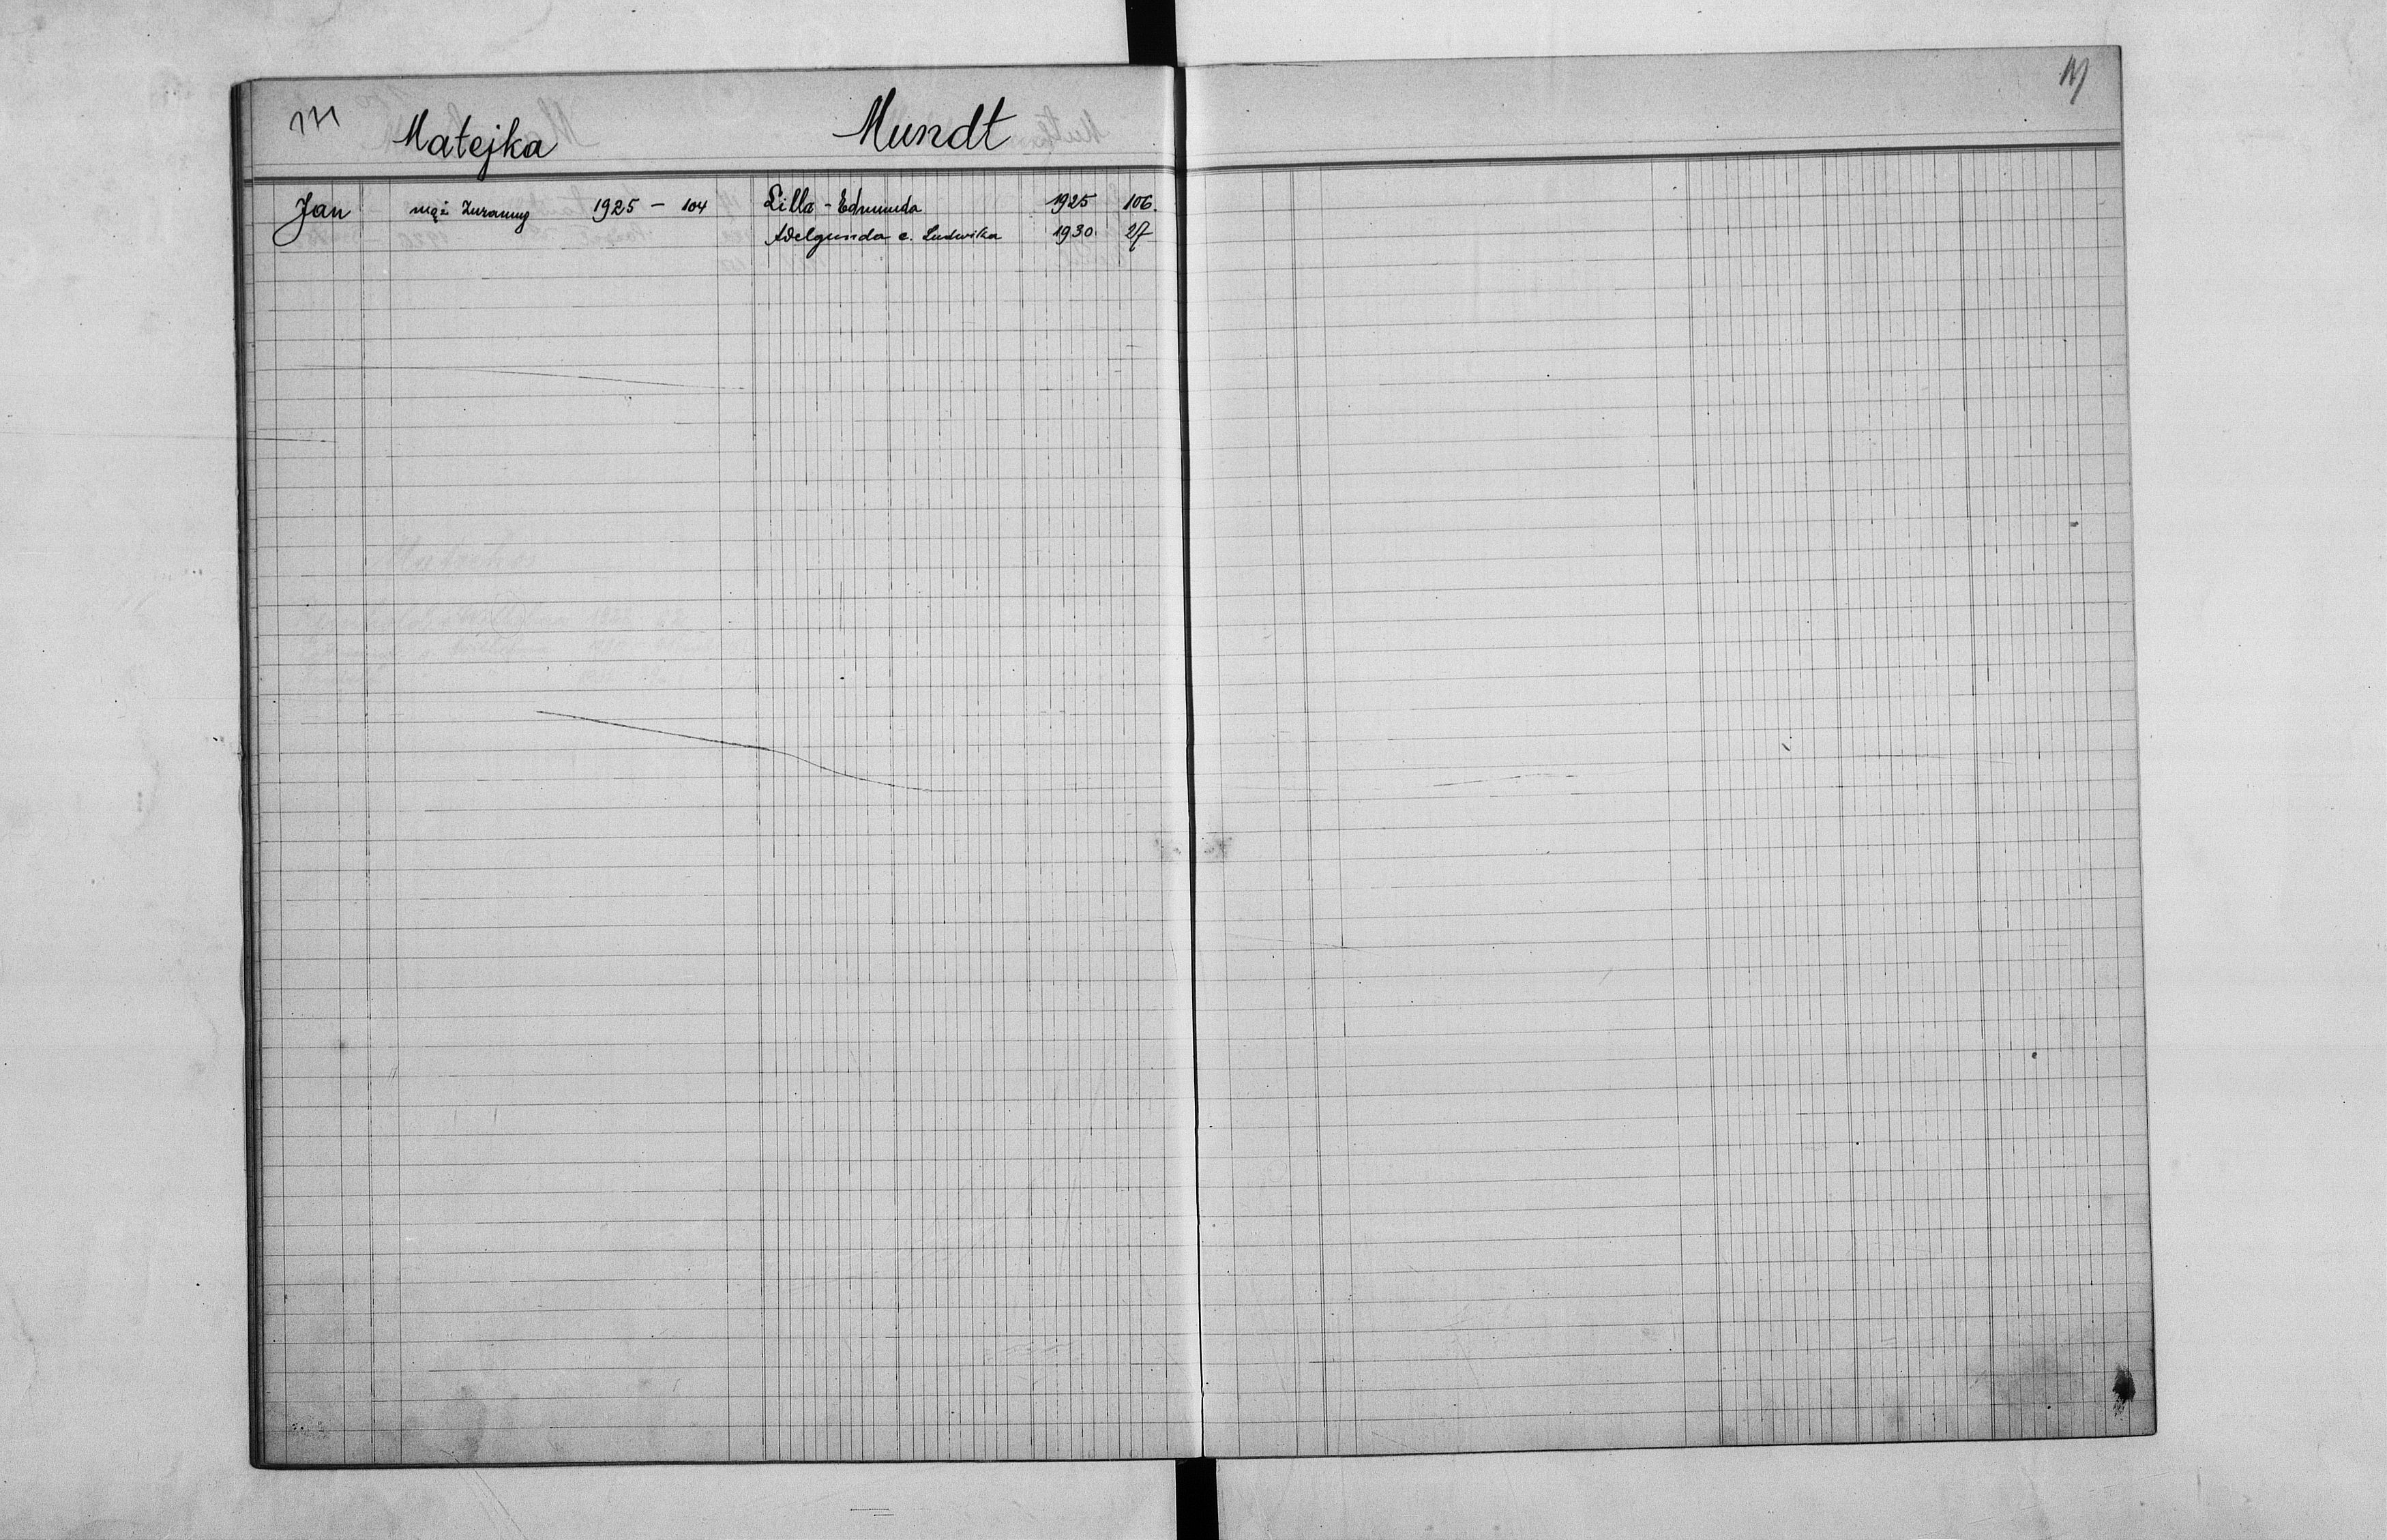 171
Matejka
Jan mąż Zuzanny 1925 - 104
Mundt
Lilla - Edmunda 1925 106.
Adelgunda c. Ludwika 1930 27